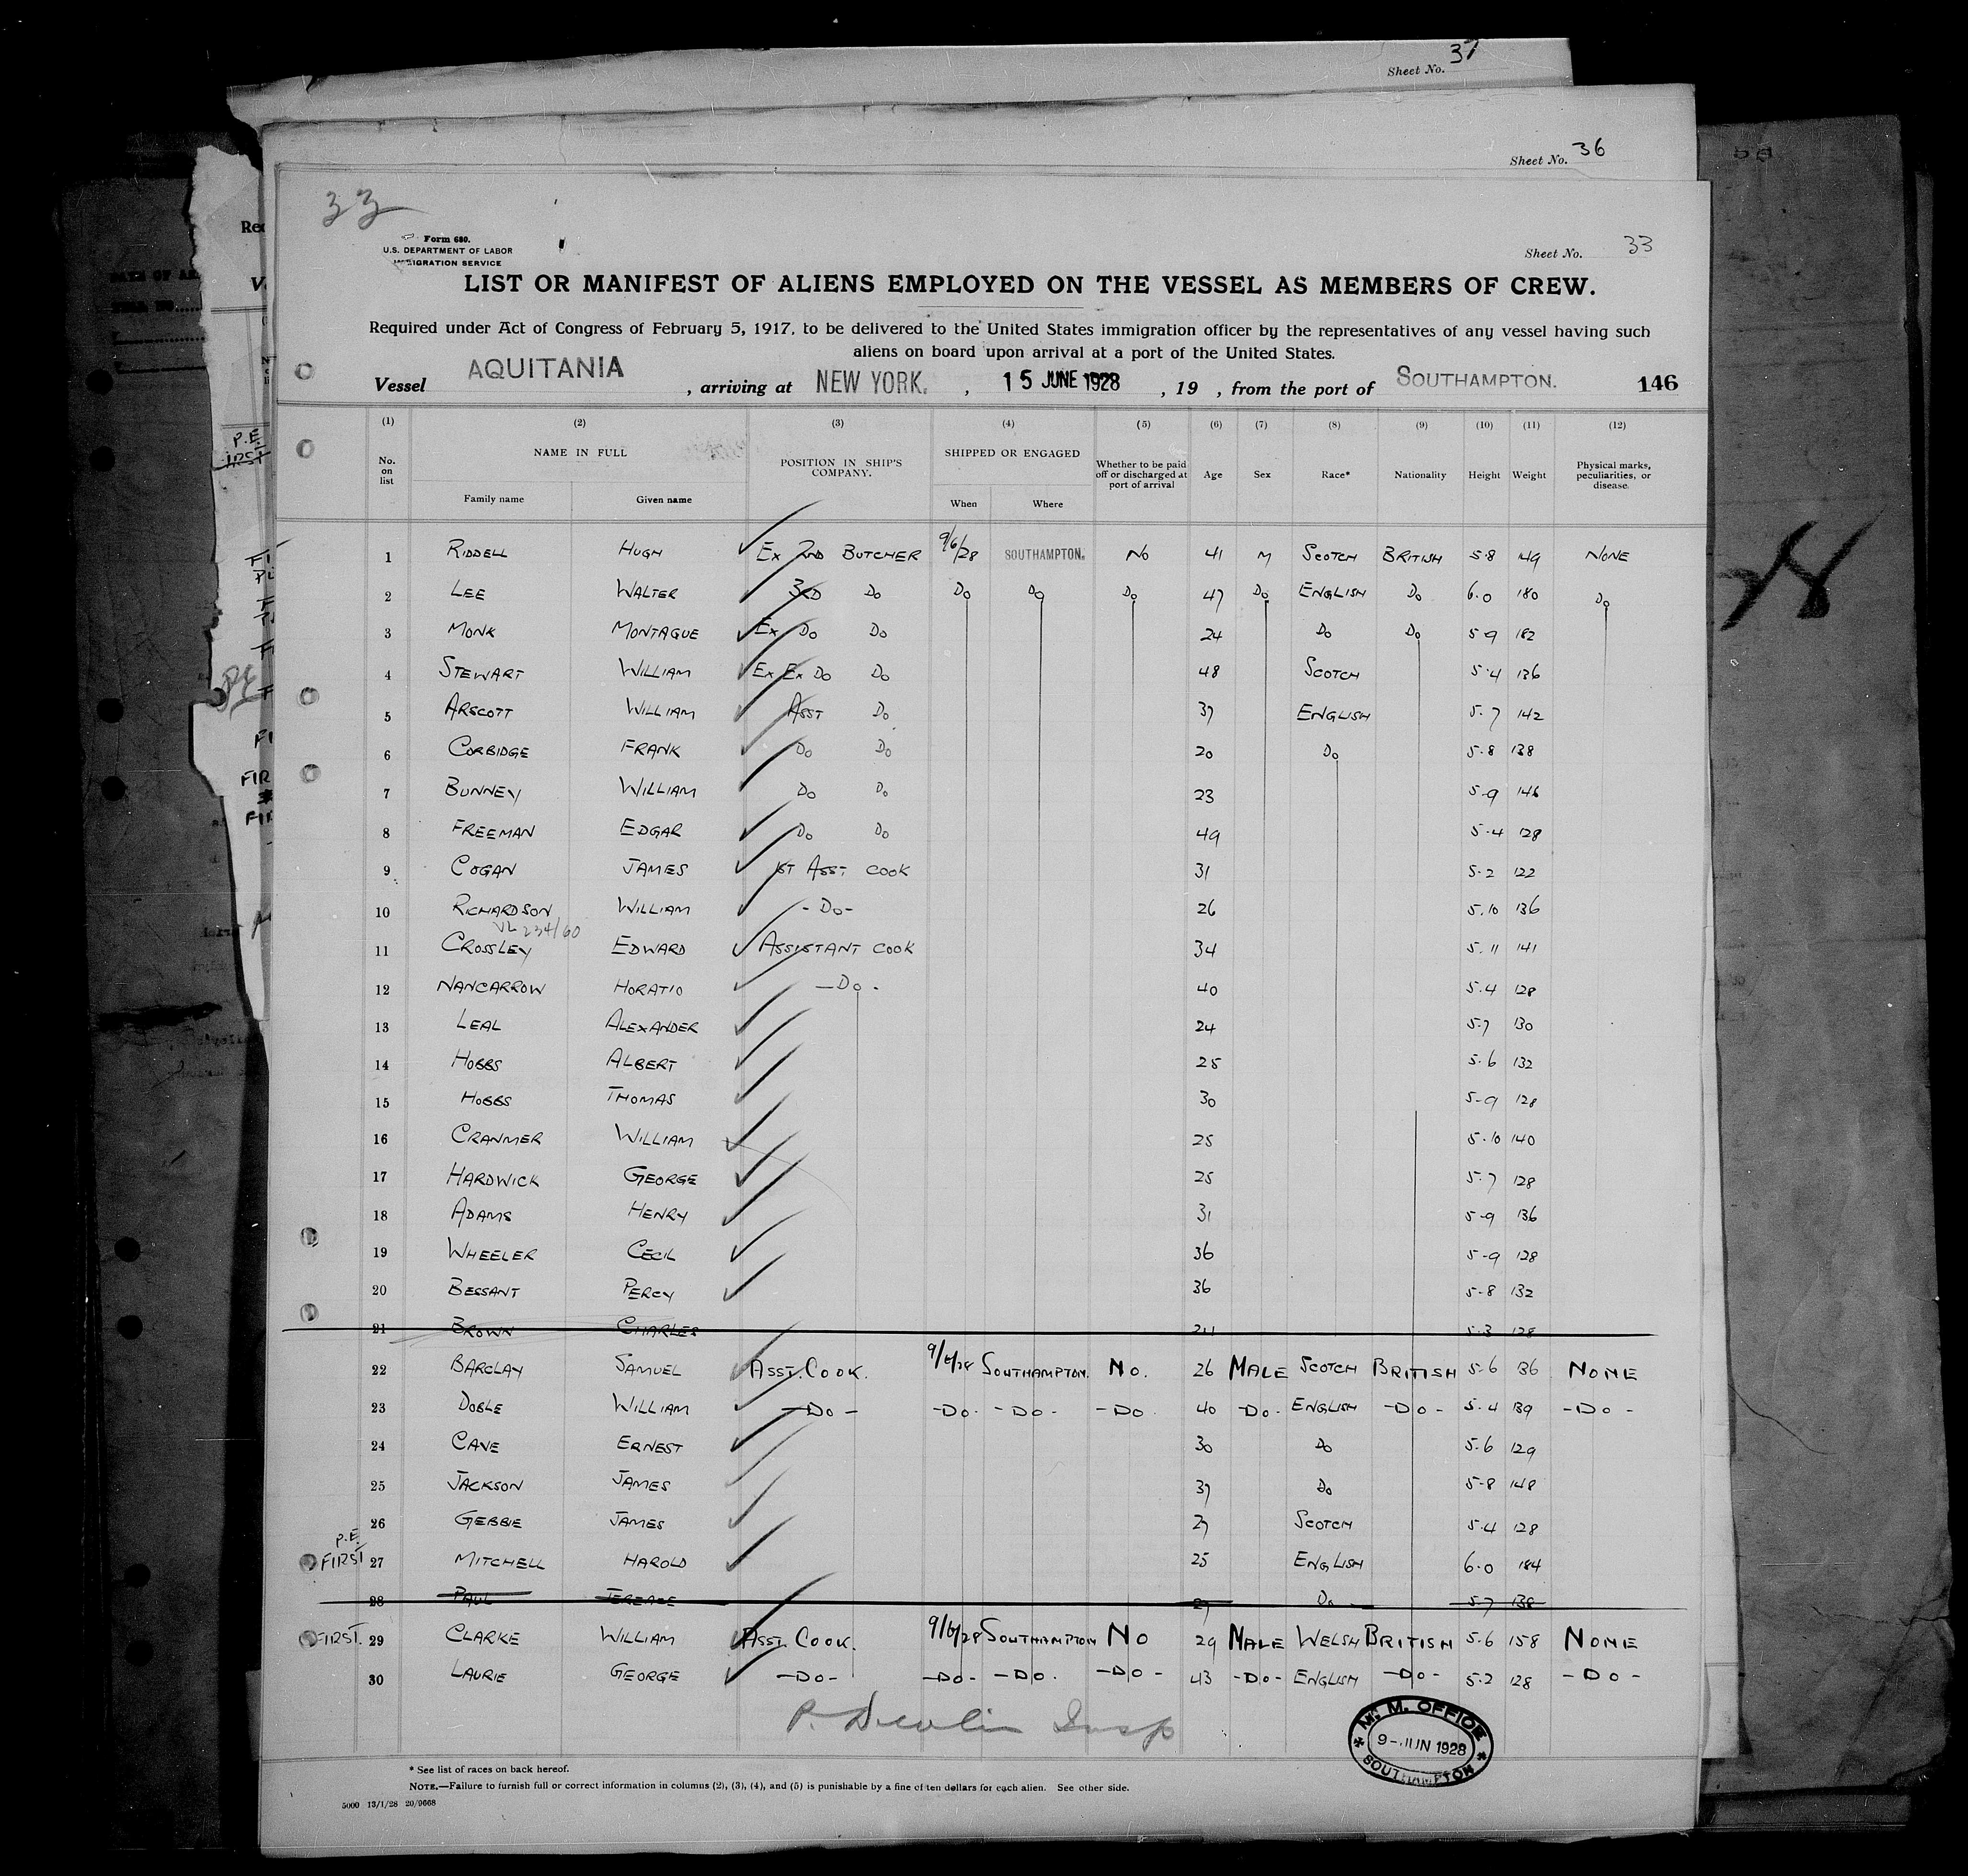 Sheet No. 37
Sheet No. 36
33
Form 680.
U.S. DEPARTMENT OF LABOR
IMMIGRATION SERVICE
Sheet No. 33
LIST OR MANIFEST OF ALIENS EMPLOYED ON THE VESSEL AS MEMBERS OF CREW.
Required under Act of Congress of February 5, 1917, to be delivered to the United States immigration officer by the representatives of any vessel having such
aliens on board upon arrival at a port of the United States.
Vessel AQUITANIA , arriving at NEW YORK. , 15 JUNE 1928 , 19 , from the port of SOUTHAMPTON. 146
(1) (2) (3) (4) (5) (6) (7) (8) (9) (10) (11) (12)
No. on list NAME IN FULL Family name Given name POSITION IN SHIP'S COMPANY. SHIPPED OR ENGAGED When Where Whether to be paid off or discharged at port of arrival Age Sex Race* Nationality Height Weight Physical marks, peculiarities, or disease.
1 RIDDELL HUGH Ex 2ND BUTCHER 9/6/28 SOUTHAMPTON. No 41 M SCOTCH BRITISH 5.8 149 NONE
2 LEE WALTER 3RD Do Do Do Do 47 Do ENGLISH Do 6.0 180 Do
3 MONK MONTAGUE Ex Do Do 24 Do Do 5-9 182
4 STEWART WILLIAM Ex Ex Do Do 48 SCOTCH 5.4 136
5 ARSCOTT WILLIAM ASST Do 37 ENGLISH 5.7 142
6 CORBIDGE FRANK Do Do 20 Do 5.8 138
7 BUNNEY WILLIAM Do Do 23 5-9 146
8 FREEMAN EDGAR Do Do 49 5.4 128
9 COGAN JAMES 1ST ASST COOK 31 5-2 122
10 RICHARDSON WILLIAM -Do- 26 5.10 136
VL 234/60
11 CROSSLEY EDWARD ASSISTANT COOK 34 5.11 141
12 NANCARROW HORATIO -Do- 40 5.4 128
13 LEAL ALEXANDER 24 5.7 130
14 HOBBS ALBERT 25 5.6 132
15 HOBBS THOMAS 30 5-9 128
16 CRANMER WILLIAM 25 5.10 140
17 HARDWICK GEORGE 25 5.7 128
18 ADAMS HENRY 31 5-9 136
19 WHEELER CECIL 36 5-9 128
20 BESSANT PERCY 36 5-8 132
21 BROWN CHARLES 5.3 128
22 BARCLAY SAMUEL ASST. COOK. 9/6/28 SOUTHAMPTON. No. 26 MALE SCOTCH BRITISH 5-6 136 NONE
23 DOBLE WILLIAM -Do- -Do- -Do- -Do 40 -Do- ENGLISH -Do- 5.4 139 -Do-
24 CAVE ERNEST 30 Do 5.6 129
25 JACKSON JAMES 37 Do 5-8 148
26 GEBBIE JAMES 27 SCOTCH 5.4 128
P.E.
FIRST 27 MITCHELL HAROLD 25 ENGLISH 6.0 184
28 PAUL 27 Do 5.7 138
FIRST. 29 CLARKE WILLIAM ASST. COOK. 9/6/28 SOUTHAMPTON No 29 MALE WELSH BRITISH 5.6 158 NONE
30 LAURIE GEORGE -Do- -Do- -Do. -Do- 43 -Do- ENGLISH -Do- 5.2 128 -Do-
P. Devlin Insp
M. M. OFFICE
9-JUN 1928
SOUTHAMPTON
* See list of races on back hereof.
NOTE.—Failure to furnish full or correct information in columns (2), (3), (4), and (5) is punishable by a fine of ten dollars for each alien. See other side.
5000 13/1/28 20/9668